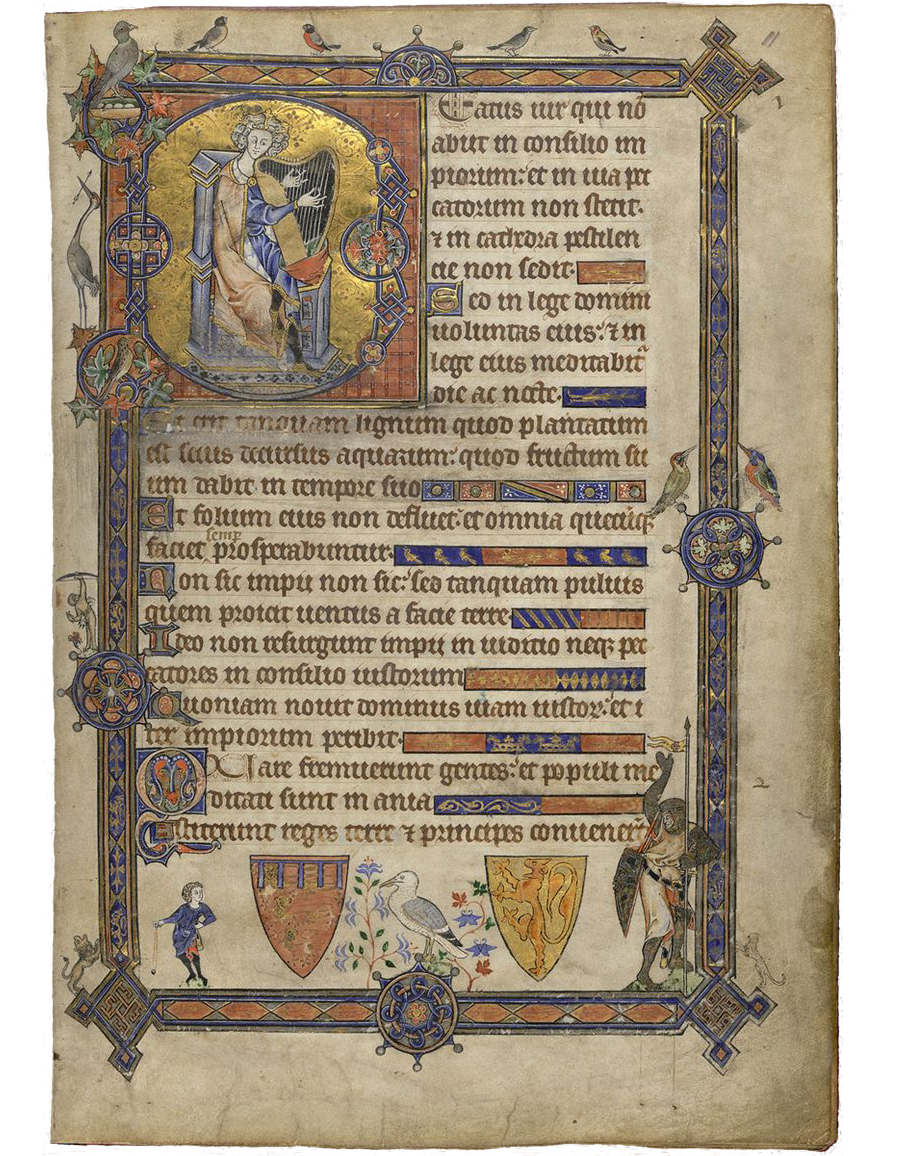 11
1
BEatus uir qui nō
abiit in consilio im
piorum: et in uia pec
catorum non stetit:
⁊ in cathedra pestilen
cie non sedit.
Sed in lege domini
uoluntas eius: ⁊ in
lege eius meditabit᷑
die ac nocte.
Et erit tanquam lignum quod plantatum
est secus decursus aquarum: quod fructum su
um dabit in tempore suo
Et folium eius non defluet: et omnia quecūq;
semp
faciet prosperabuntur.
Non sic impii non sic: sed tanquam puluis
quem proicit uentus a facie terre
Ideo non resurgunt impii in iudicio neq; pec
catores in consilio iustorum
Quoniam nouit dominus uiam iustoꝝ: et i
ter impiorum peribit.
2
QUare fremuerunt gentes: et populi me
ditati sunt inania
Astiterunt reges terre ⁊ principes conuenerūt